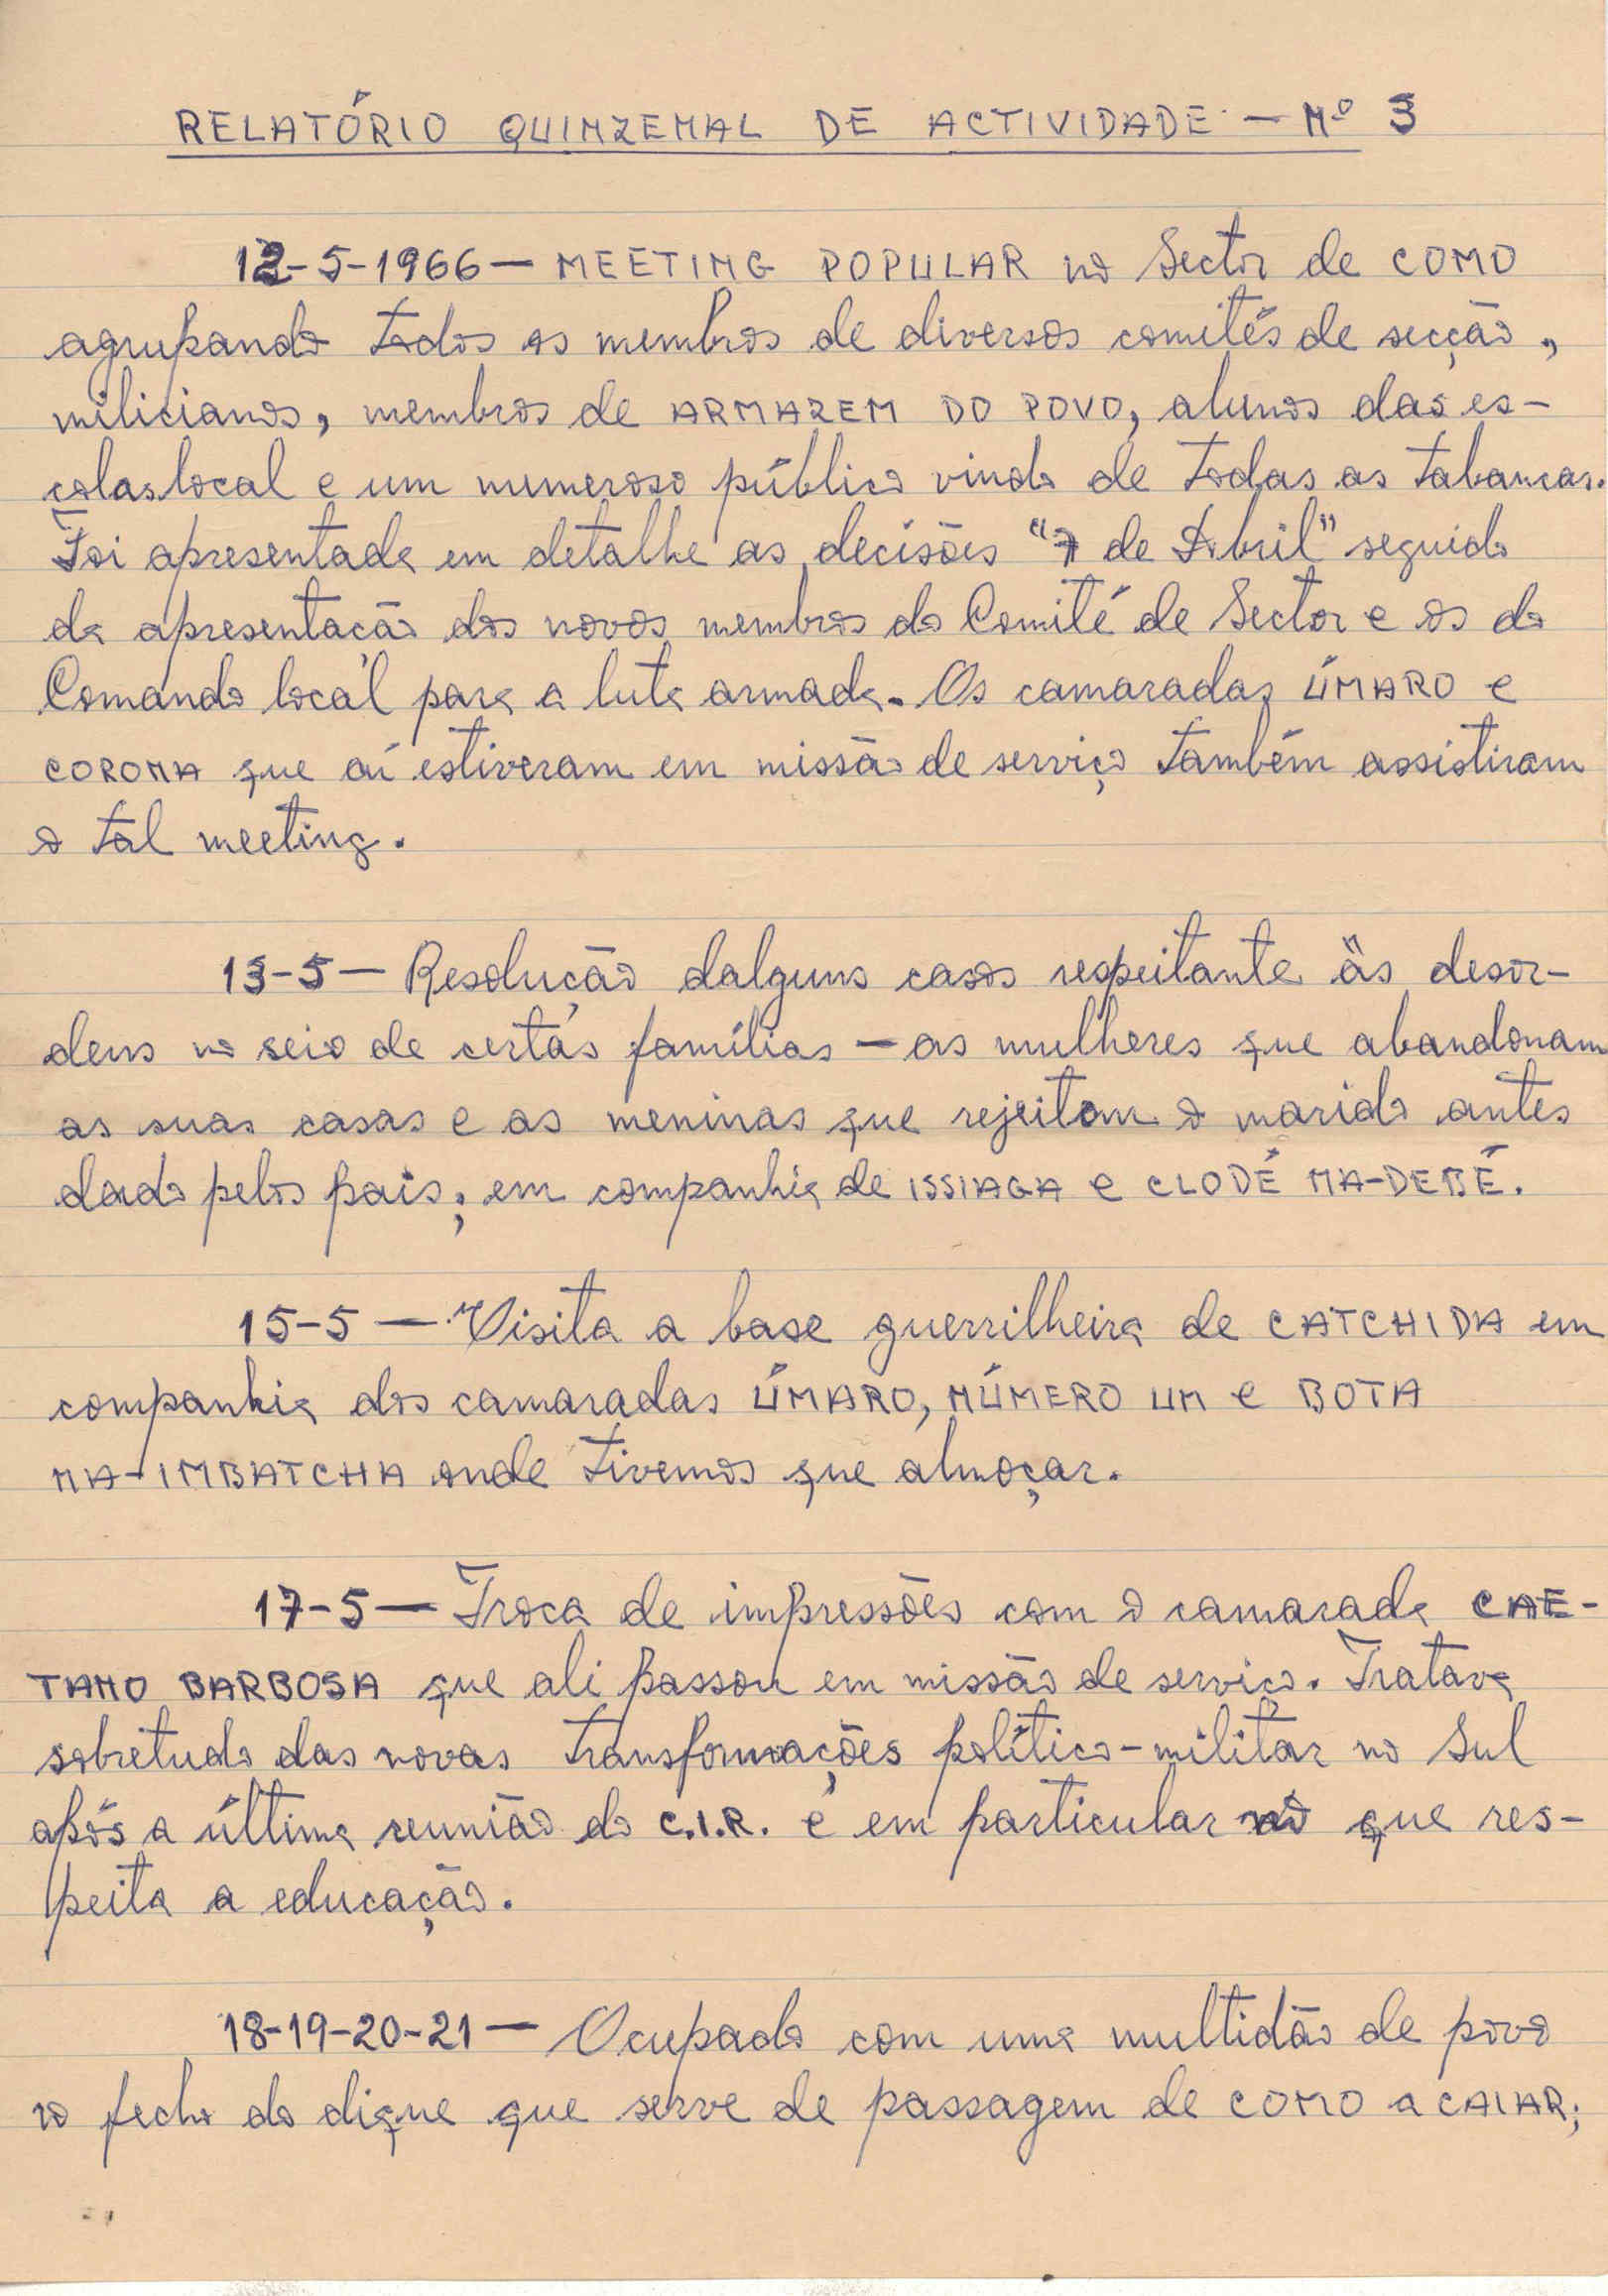 RELATÓRIO QUINZENAL DE ACTIVIDADE - Nº 3
12-5-1966 — MEETING POPULAR no Sector de COMO
agrupando todos os membros de diversos comités de secção,
milicianos, membros de ARMAZEM DO POVO, alunos das es-
colas local e um numeroso público vindo de todas as tabancas.
Foi apresentada em detalhe as decisões "7 de Abril" seguido
da apresentação dos novos membros do Comité de Sector e os do
Comando locál para a luta armada. Os camaradas ÚMARO e
CORONA que aí estiveram em missão de serviço também assistiram
o tal meeting.
13-5 — Resolução dalguns casos respeitante às desor-
dens no seio de certas famílias — as mulheres que abandonam
as suas casas e as meninas que rejeitam o marido antes
dado pelos pais; em companhia de ISSIAGA e CLODÉ NA-DEBÉ.
15-5 — Visita a base guerrilheira de CATCHIDA em
companhia dos camaradas ÚMARO, NÚMERO UM e BOTA
NA-IMBATCHA onde tivemos que almoçar.
17-5 — Troca de impressões com o camarada CAE-
TANO BARBOSA que ali passou em missão de serviço. Tratava
sobretudo das novas transformações político-militar no Sul
após a última reunião do C.I.R. e em particular no que res-
peita a educação.
18-19-20-21 — Ocupado com uma multidão de povo
no fecho do dique que serve de passagem de COMO a CAIAR;